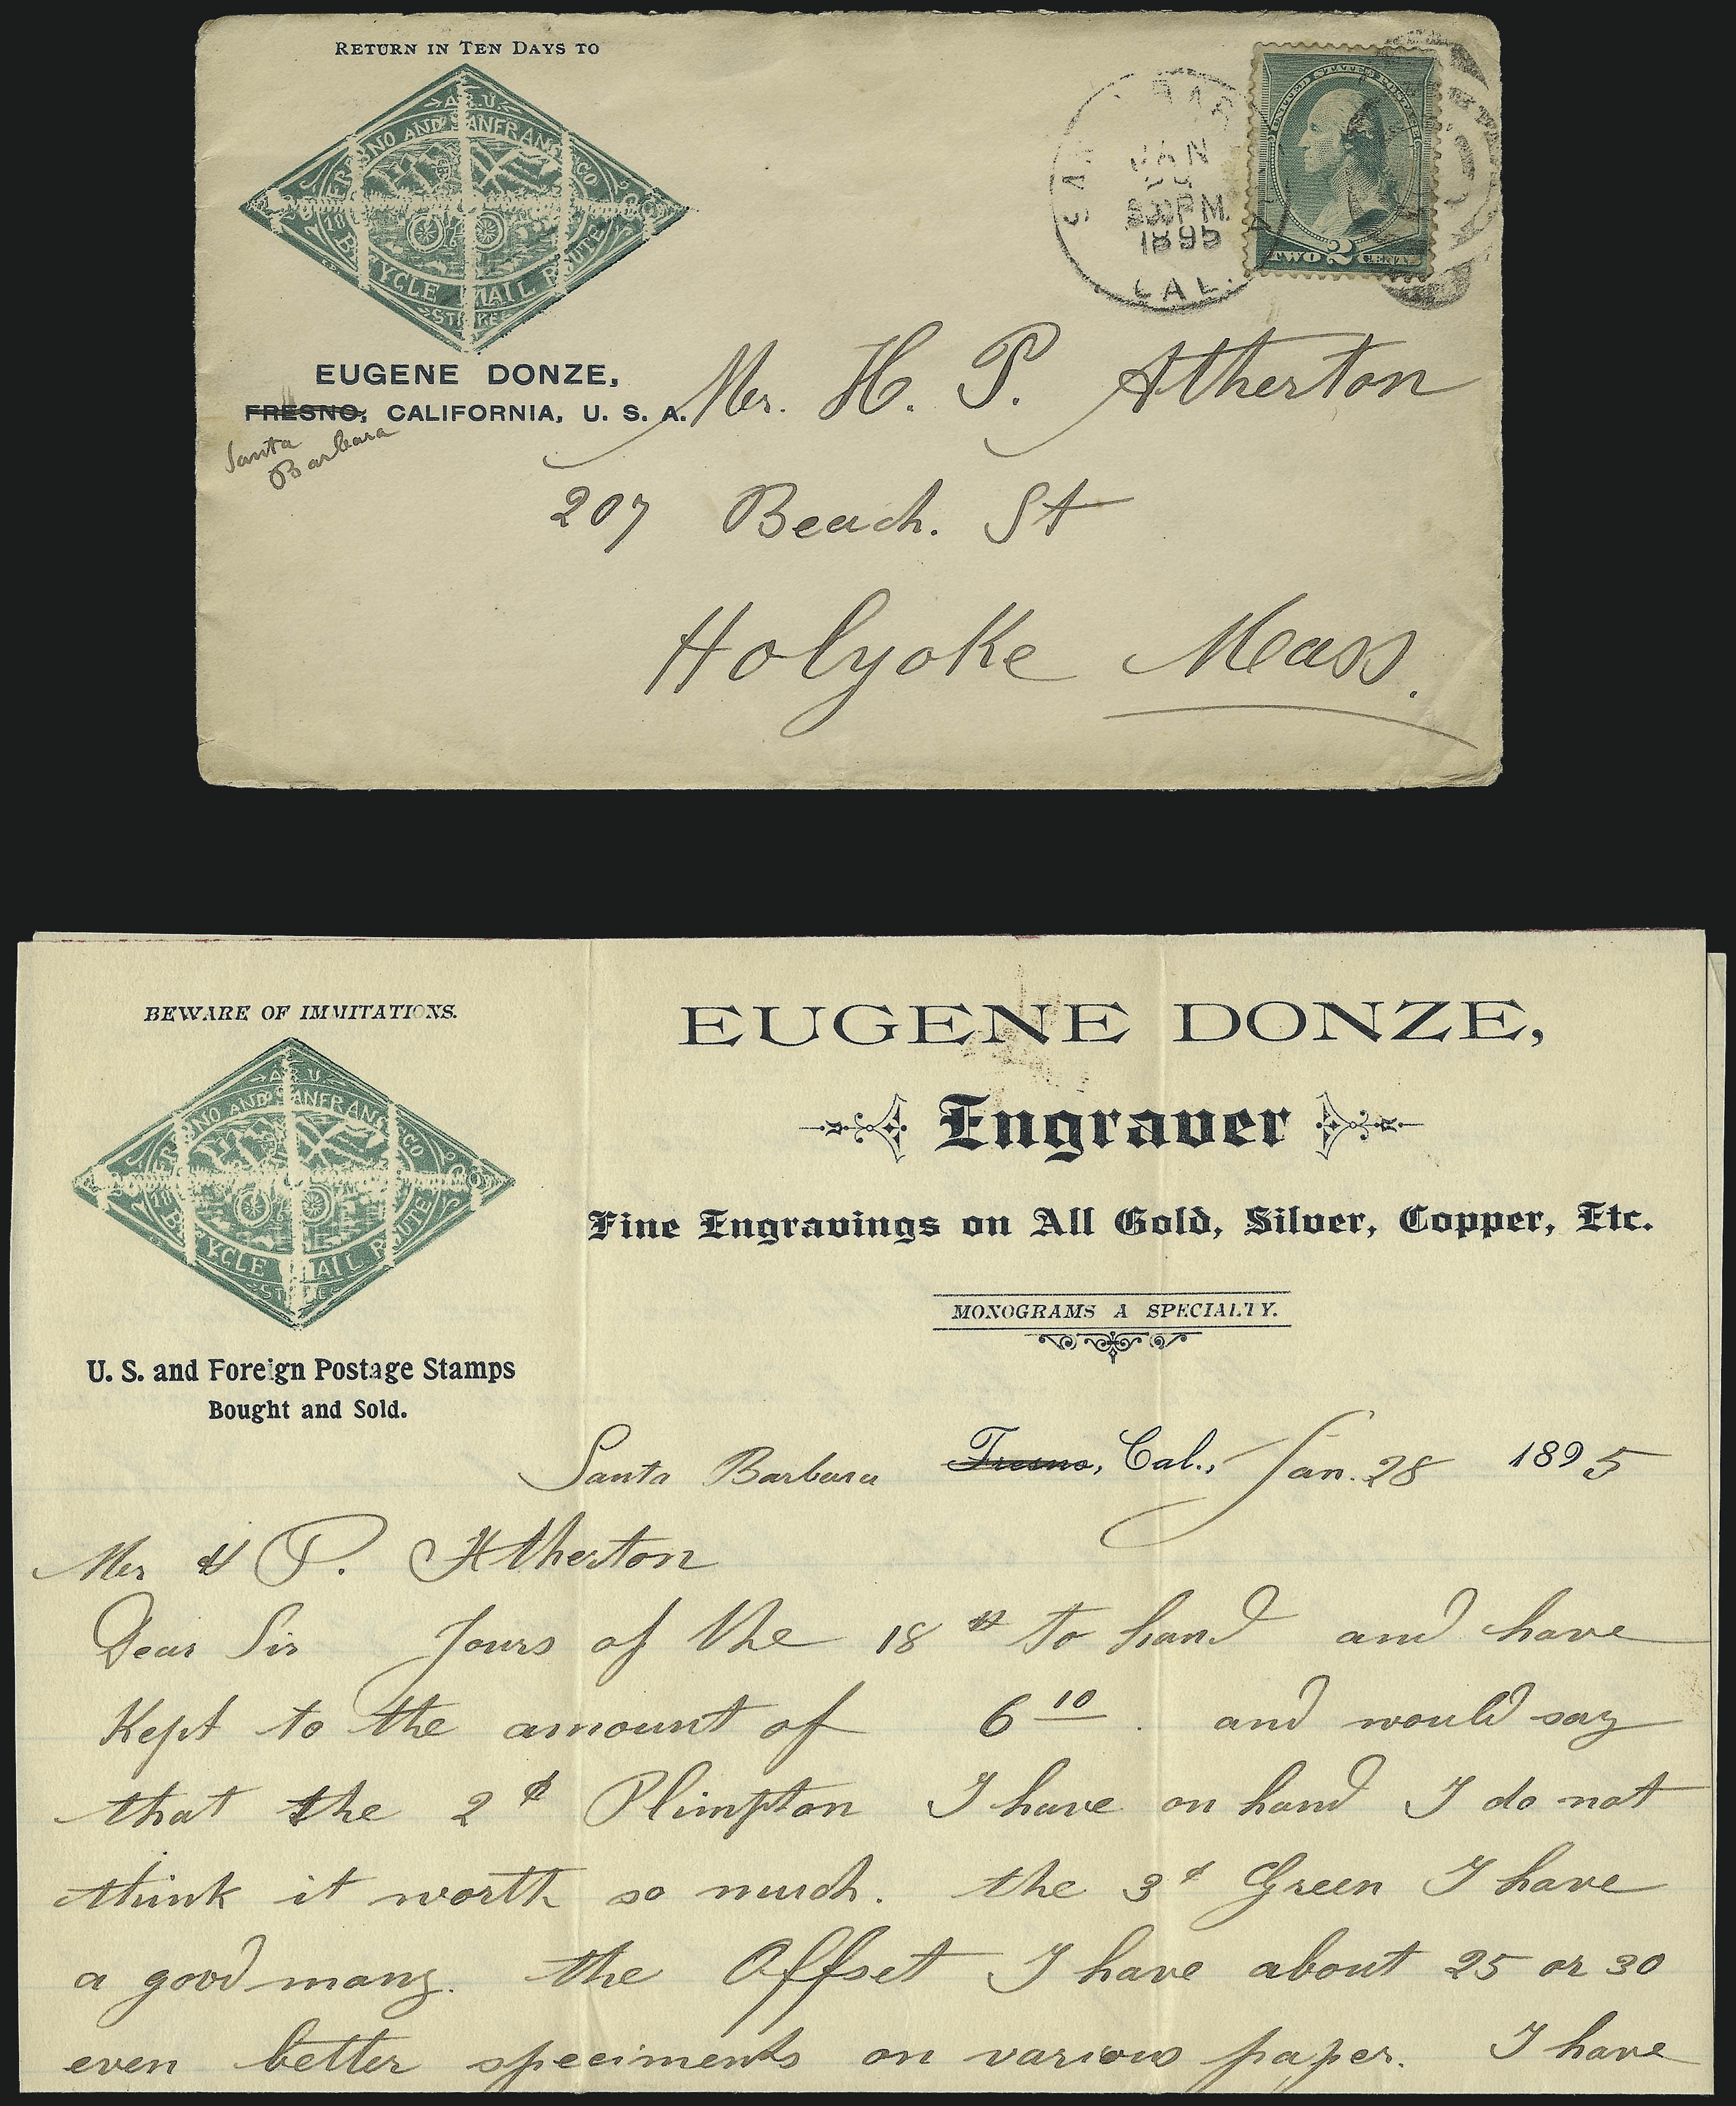 RETURN IN TEN DAYS TO
A.R.U.
FRESNO AND SAN FRANCISCO
BICYCLE MAIL ROUTE
STRIKE
EUGENE DONZE,
FRESNO, CALIFORNIA, U. S. A.
Santa
Barbara
JAN
PM
1895
CAL.
UNITED STATES POSTAGE
TWO 2 CENTS
Mr. H. P. Atherton
207 Beach. St
Holyoke Mass.
BEWARE OF IMMITATIONS.
A.R.U.
FRESNO AND SAN FRANCISCO
BICYCLE MAIL ROUTE
STRIKE
U. S. and Foreign Postage Stamps
Bought and Sold.
EUGENE DONZE,
Engraver
Fine Engravings on All Gold, Silver, Copper, Etc.
MONOGRAMS A SPECIALTY.
Santa Barbara Fresno, Cal., Jan. 28 1895
Mr H P. Atherton
Dear Sir Yours of the 18 to hand and have
Kept to the amount of 6 10. and would say
that the 2¢ Plimpton I have on hand I do not
think it worth so much. the 3¢ Green I have
a good many. the Offset I have about 25 or 30
even better speciments on various paper. I have